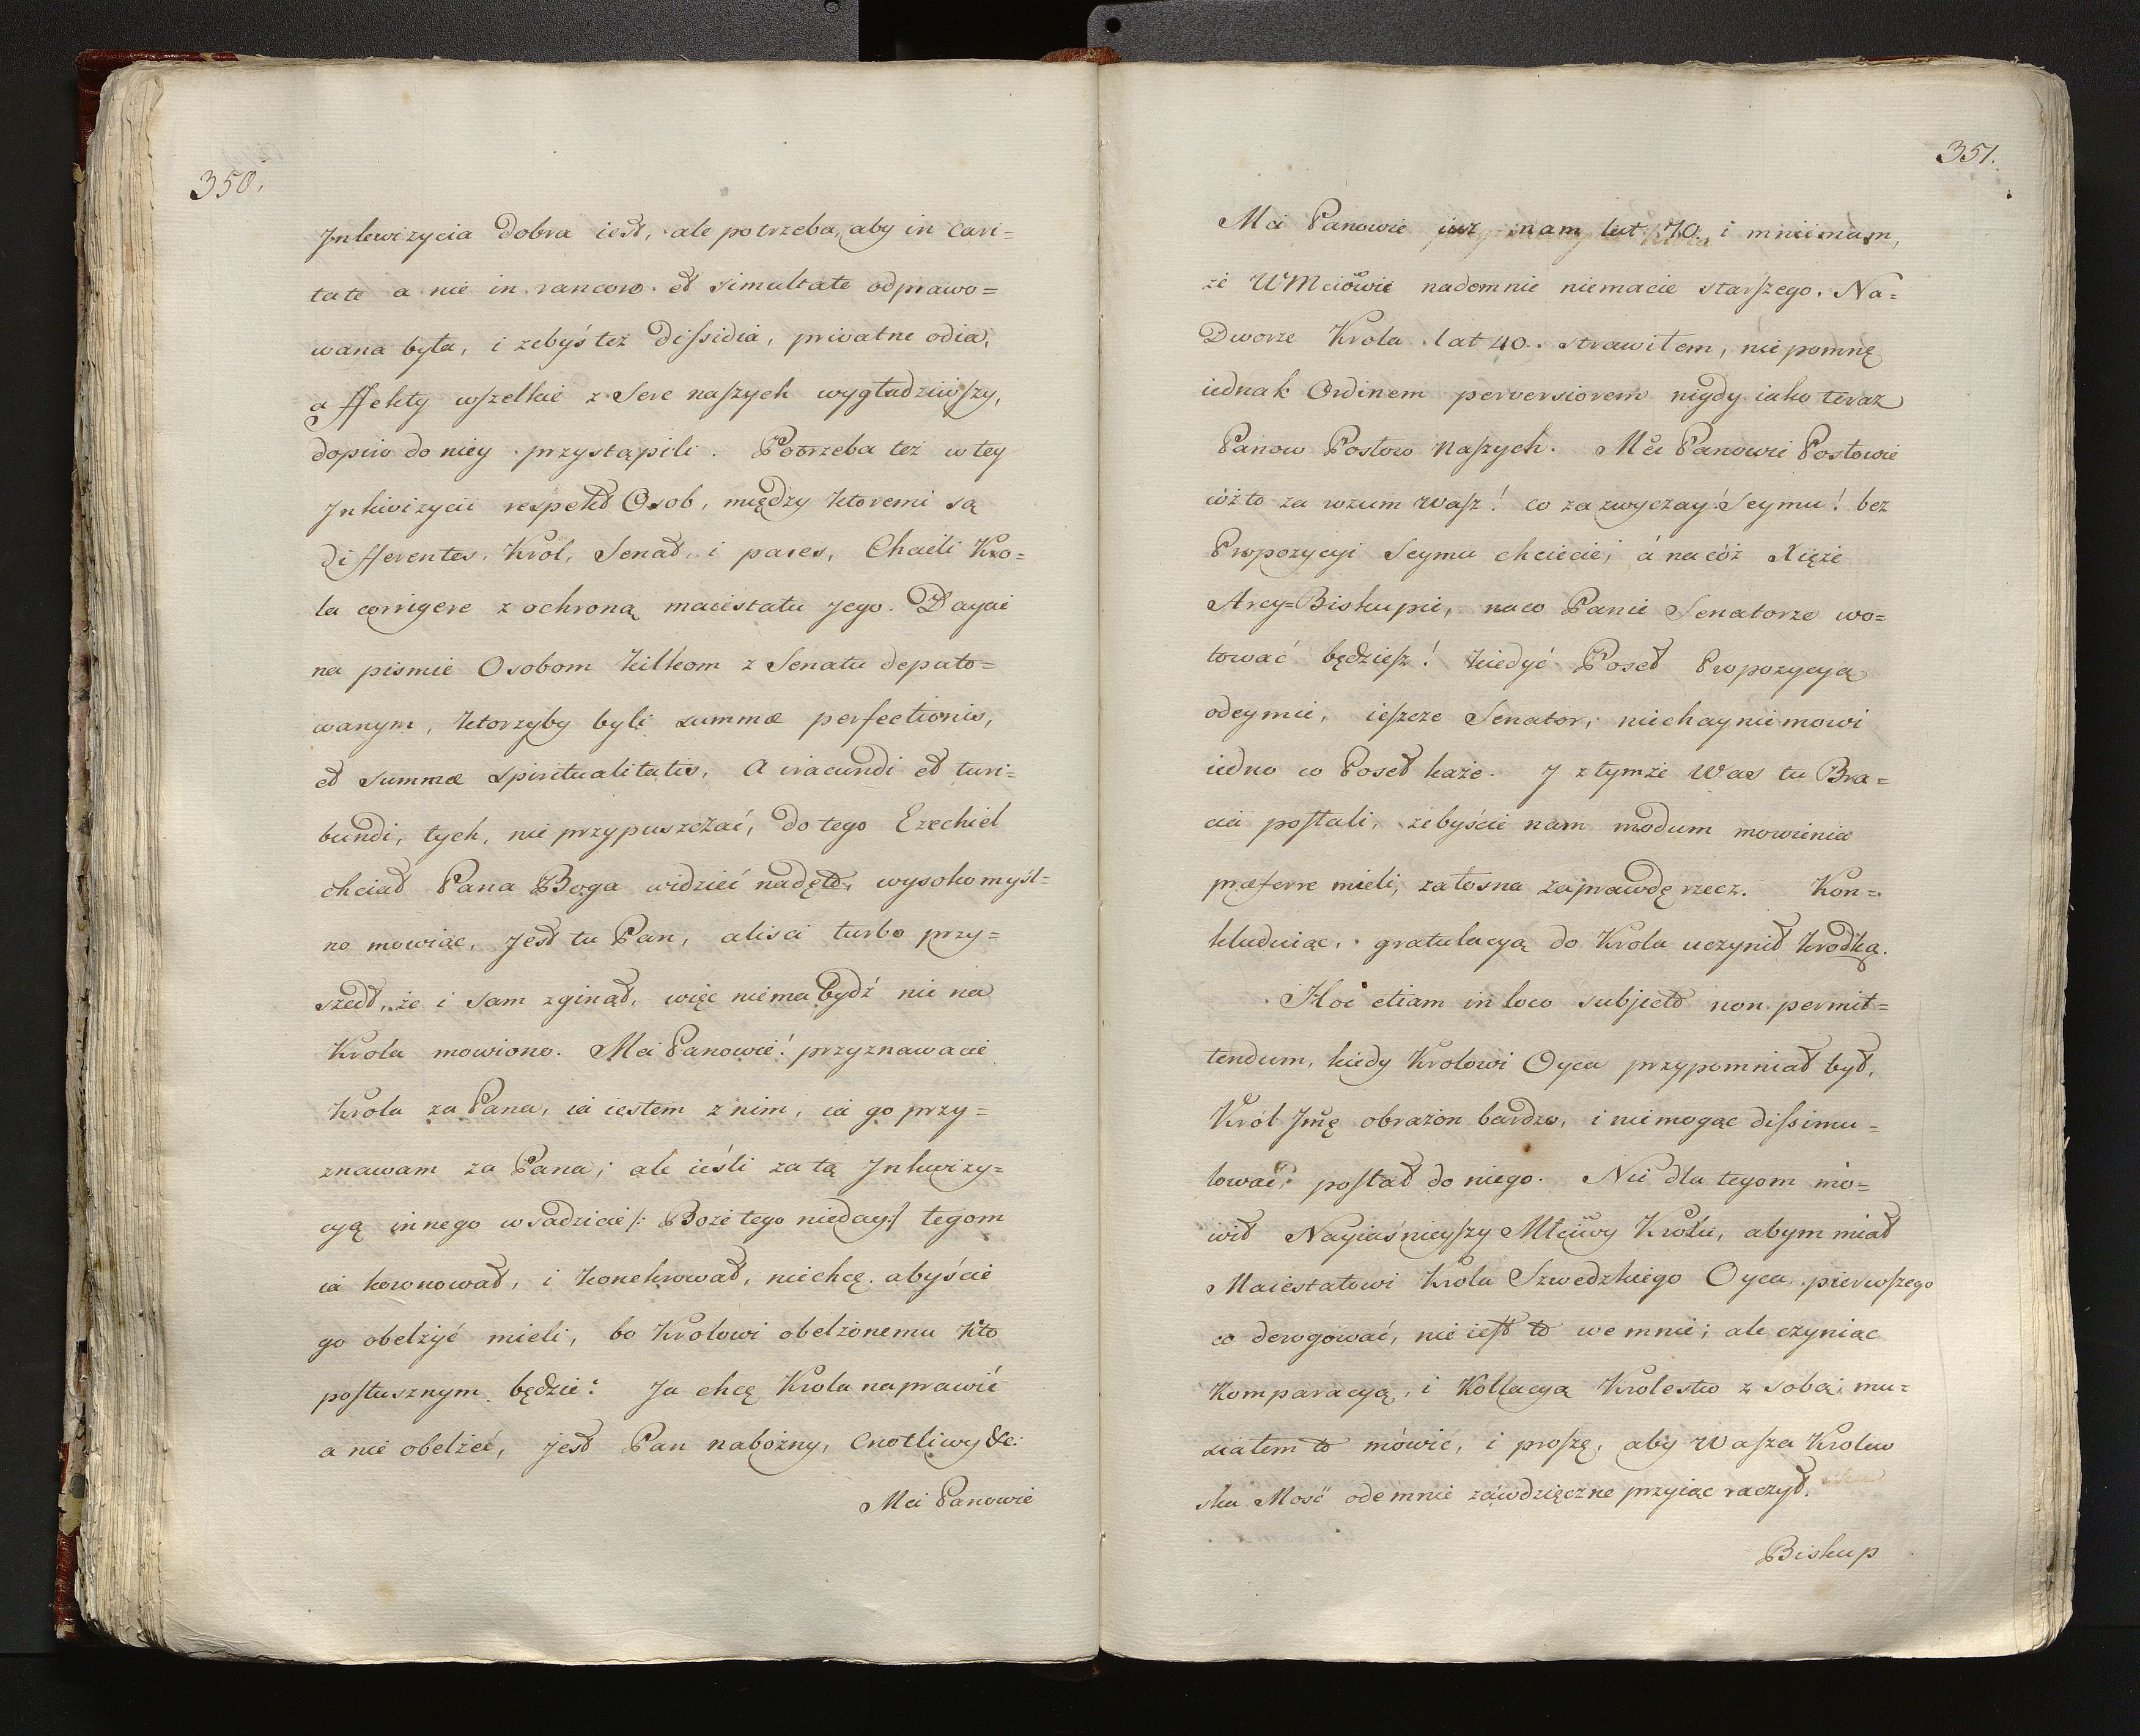 350.
Jnkwizycia dobra iest, ale potrzeba, aby in cari=
tate a nie in rancore et simultate odprawo=
wana była, i zebyś tez dissidia, privatne odia,
affekty wszelkie z Serc naszych wygładziwszy,
dopiro do niey przystąpili. Potrzeba tez w tey
Jnkwizycii respekt Osob, między ktoremi są
differentes, Krol, Senat i pares, Chcieli Kro=
la corrigere z ochroną maiestatu Jego. Daycie
na pismie Osobom kilkom z Senatu deputo=
wanym, ktorzyby byli summæ perfectionis,
et summæ spiritualitatis, a iracundi et turi=
bundi, tych, nie przypuszczać, do tego Ezechiel
chciał Pana Boga widzieć nadęto, wysokomyśl=
no mowiąc, Jest tu Pan, alisci turbo przy=
szedł, że i sam zginął, więc niema bydź nic na
Krola mowiono. Mci Panowie! przyznawacie
Krola za Pana, ia iestem z nim, ia go przy=
znawam za Pana; ale ieśli za tą Jnkwizy=
cyą innego wsadzicie /: Boże tego nieday :/ tegom
ia koronował, i konekrował, niechcę abyście
go obelżyć mieli, bo Krolowi obelżonemu Kto
posłusznym będzie: Ja chcę Krola naprawić
a nie obelżeć, Jest Pan nabożny, Cnotliwy &c:
Mci Panowie
351.
Mci Panowie już mam lat 70. i mniemam,
że WMciowie nademnie niemacie starszego. Na=
Dworze Krola lat 40. strawiłem, nie pomnę
iednak Ordinem perversiorem nigdy iako teraz
Panow Posłow Naszych. Mci Panowie Posłowie
cóż to za rozum Wasz! co za zwyczay Seymu! bez
Propozycyi Seymu chcecie, á na cóż Xięże
Arcy=Biskupie, na co Panie Senatorze wo=
tować będziesz! kiedyć Poseł Propozycyą
odeymie, ieszcze Senator, niechay nie mowi
iedno co Poseł każe. J z tymże Was tu Bra=
cia posłali, żebyście nam modum mowienia
præferre mieli, żałosna zaprawdę rzecz. Kon=
kluduiąc, gratulacyą do Krola uczynił krodką.
Hoc etiam in loco subject non permit=
tendum, kiedy Krolowi Oyca przypomniał był,
Król Jmę obrażon bardzo, i niemogąc dissimu=
lować, posłał do niego. Nie dla tegom mó=
wił Nayiaśnieyszy Młciwy Krolu, abym miał
Maiestatowi Krola Szwedzkiego Oyca, pierwszego
co derogować, nie iest to we mnie; ale czyniąc
Komparacyą, i Kollacyą Krolestw z sobą, mu=
siałem to mówić, i proszę, aby Wasza Krolew
ska Mość odemnie záwdzięczne przyiąc raczył.
Biskup